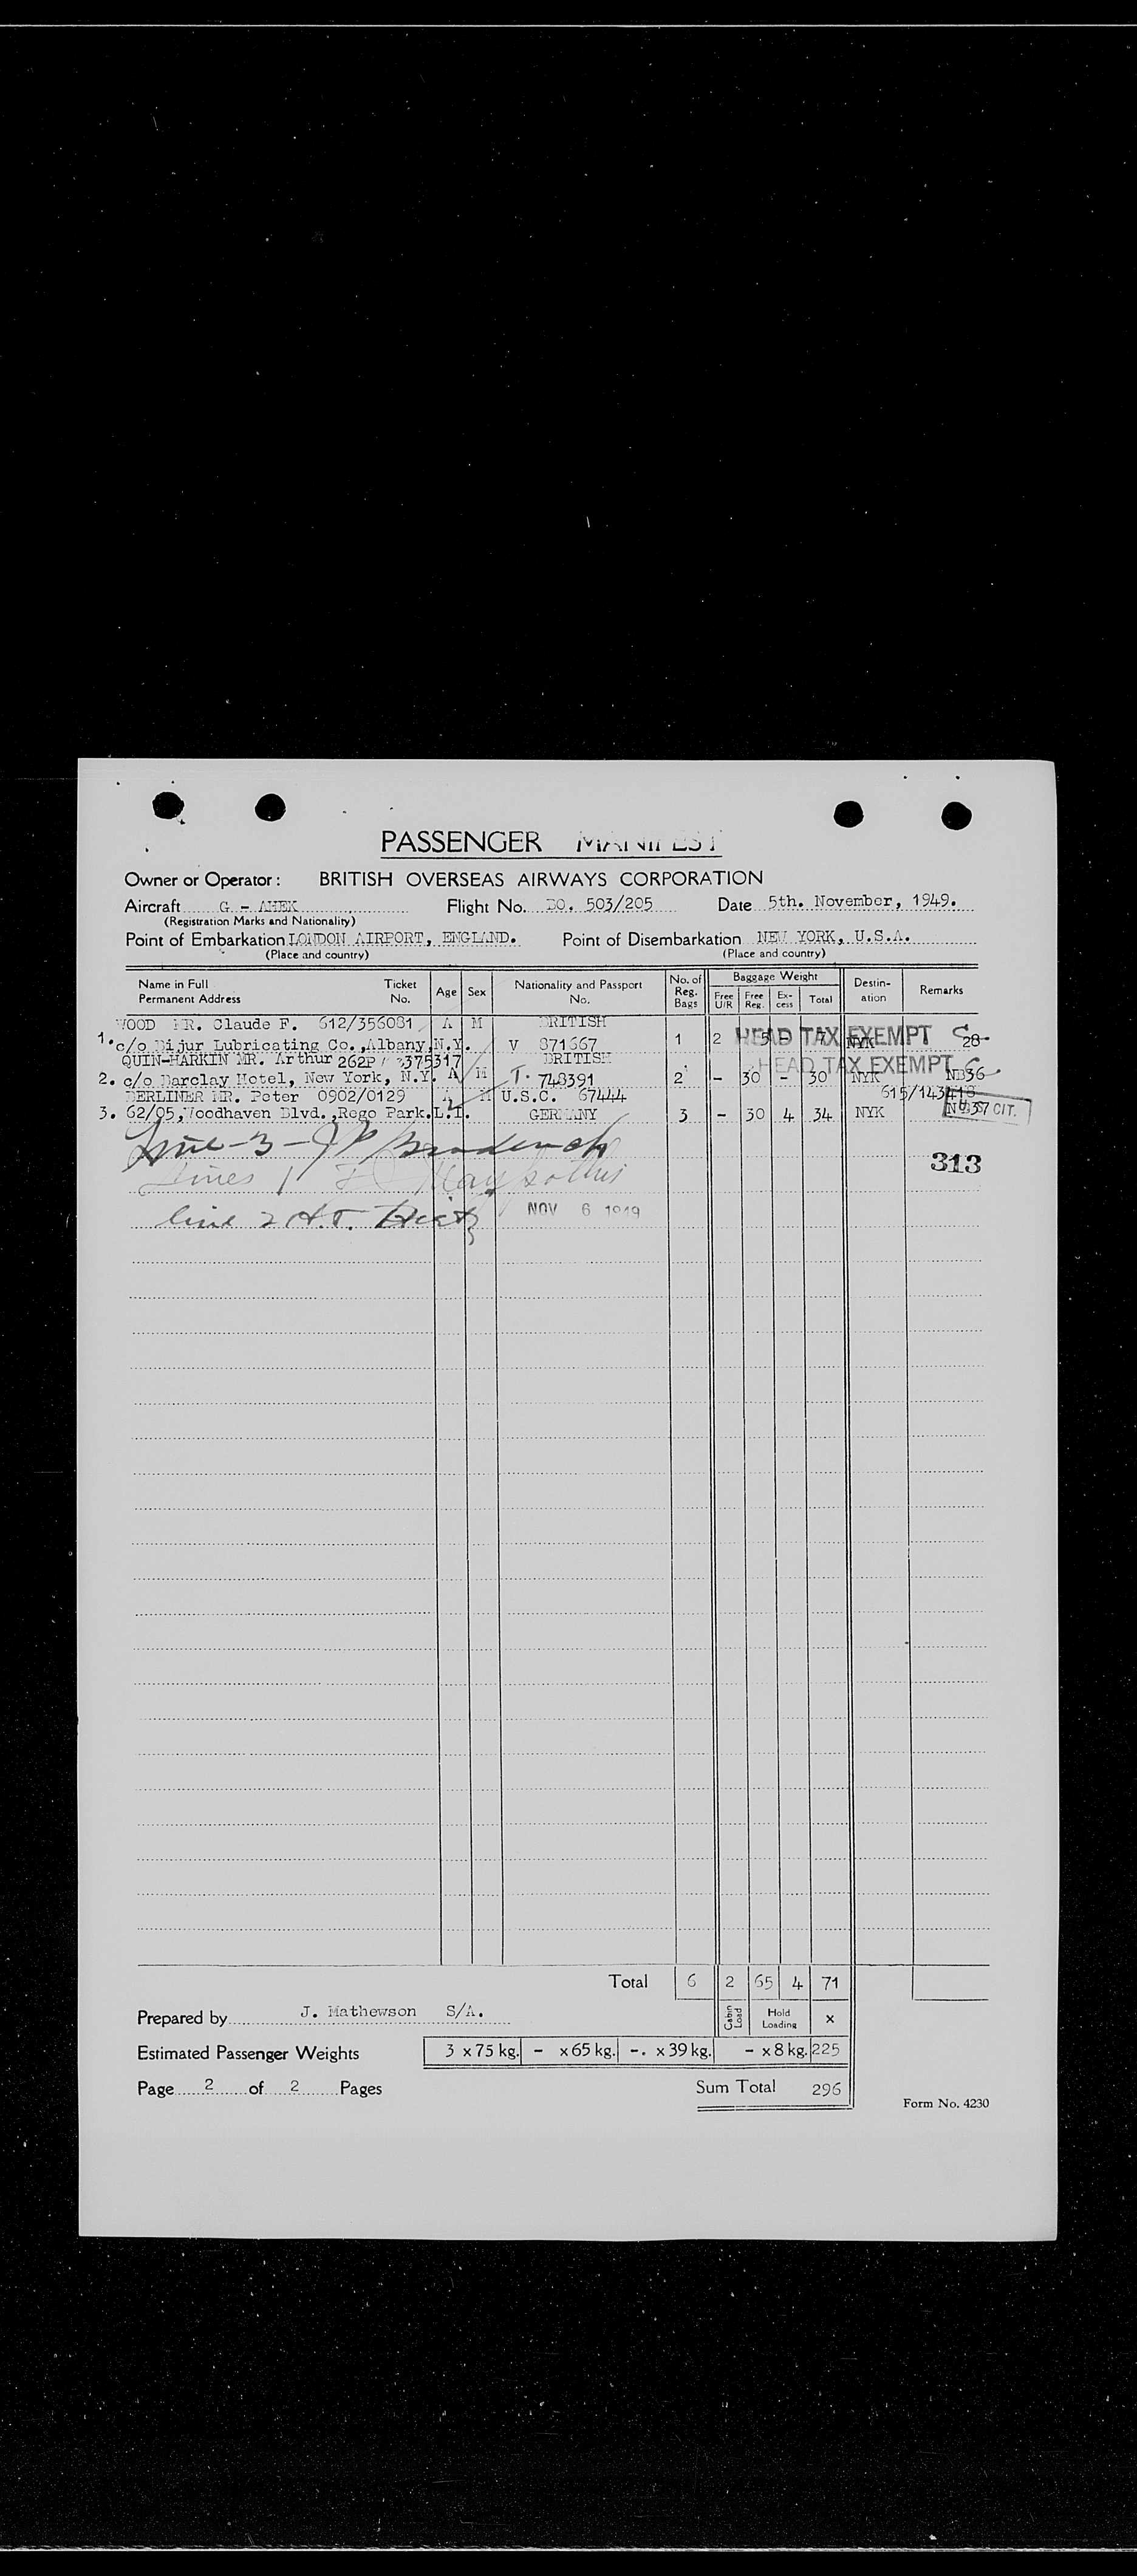 PASSENGER MANIFEST
Owner or Operator : BRITISH OVERSEAS AIRWAYS CORPORATION
Aircraft G - AHEK Flight No. BO. 503/205 Date 5th. November, 1949.
(Registration Marks and Nationality)
Point of Embarkation LONDON AIRPORT, ENGLAND. Point of Disembarkation NEW YORK, U.S.A.
(Place and country) (Place and country)
Name in Full Permanent Address Ticket No. Age Sex Nationality and Passport No. No. of Reg. Bags Baggage Weight Free U/R Free Reg. Ex-cess Total Destin-ation Remarks
WOOD MR. Claude F. 612/356081 A M BRITISH
1. c/o Bijur Lubricating Co.,Albany,N.Y. V 871667 1 2 5 - 7 NYK 28
HEAD TAX EXEMPT
QUIN-HARKIN MR. Arthur 262P 375317 BRITISH
HEAD TAX EXEMPT
2. c/o Barclay Hotel, New York, N.Y. A M T. 748391 2 - 30 - 30 NYK NB36
BERLINER MR. Peter 0902/0129 A M U.S.C. 67444 615/143418
3. 62/05,Woodhaven Blvd.,Rego Park.L.I. GERMANY 3 - 30 4 34 NYK NB37 CIT.
Line - 3 -
313
Lines 1
line 2 H.T.
NOV 6 1949
Total 6 2 65 4 71
Prepared by J. Mathewson S/A. Cabin Load Hold Loading x
Estimated Passenger Weights 3 x 75 kg. - x 65 kg. -. x 39 kg. - x 8 kg. 225
Page 2 of 2 Pages Sum Total 296
Form No. 4230